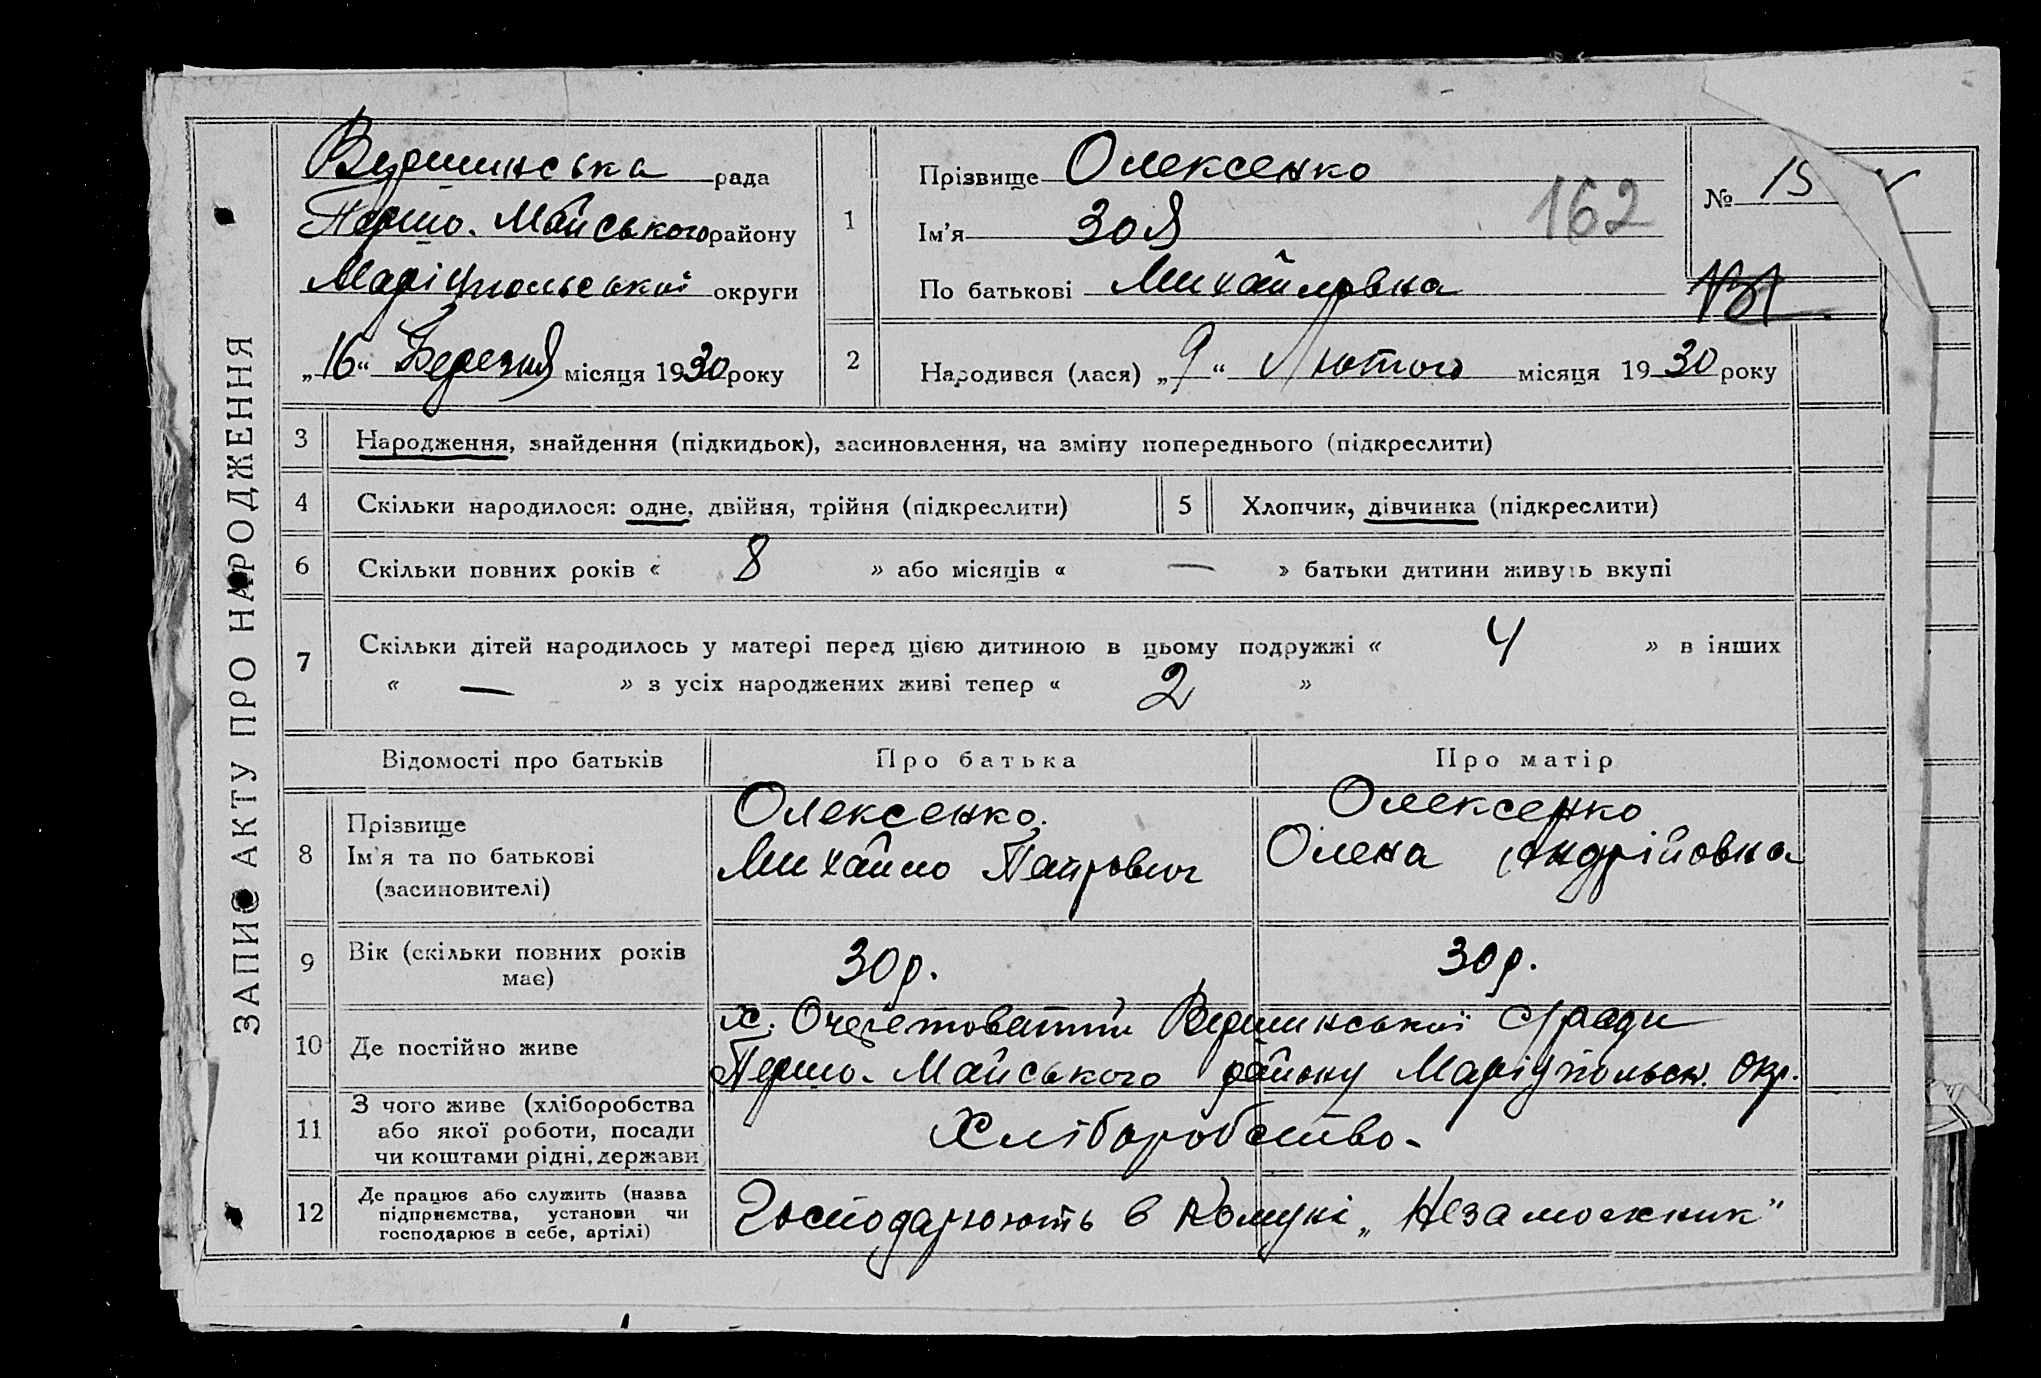 ЗАПИС АКТУ ПРО НАРОДЖЕННЯ
Вершинська рада
Першо-Майського району
Маріупольської округи
„16“ Березня місяця 1930 року
1
Прізвище Олексенко
Ім'я Зоя
По батькові Михайловна
162
№ 15
2
Народився (лася) „9“ Лютого місяця 1930 року
3 Народження, знайдення (підкидьок), засиновлення, на зміну попереднього (підкреслити)
4 Скільки народилося: одне, двійня, трійня (підкреслити) 5 Хлопчик, дівчинка (підкреслити)
6 Скільки повних років « 8 » або місяців « — » батьки дитини живуть вкупі
7 Скільки дітей народилось у матері перед цією дитиною в цьому подружжі « 4 » в інших
« — » з усіх народжених живі тепер « 2 »
Відомості про батьків Про батька Про матір
8 Прізвище
Ім'я та по батькові
(засиновителі)
Олексенко.
Михайло Петрович
Олексенко
Олена Андрійовна
9 Вік (скільки повних років
має)
30 р. 30 р.
10 Де постійно живе
х. Очеретоватий Вершинської С/ради
Першо-Майського району Маріупольськ. окр.
11 З чого живе (хліборобства
або якої роботи, посади
чи коштами рідні, держави
Хліборобство-
12 Де працює або служить (назва
підприємства, установи чи
господарює в себе, артілі)
Господарюють в Комуні „Незаможник"